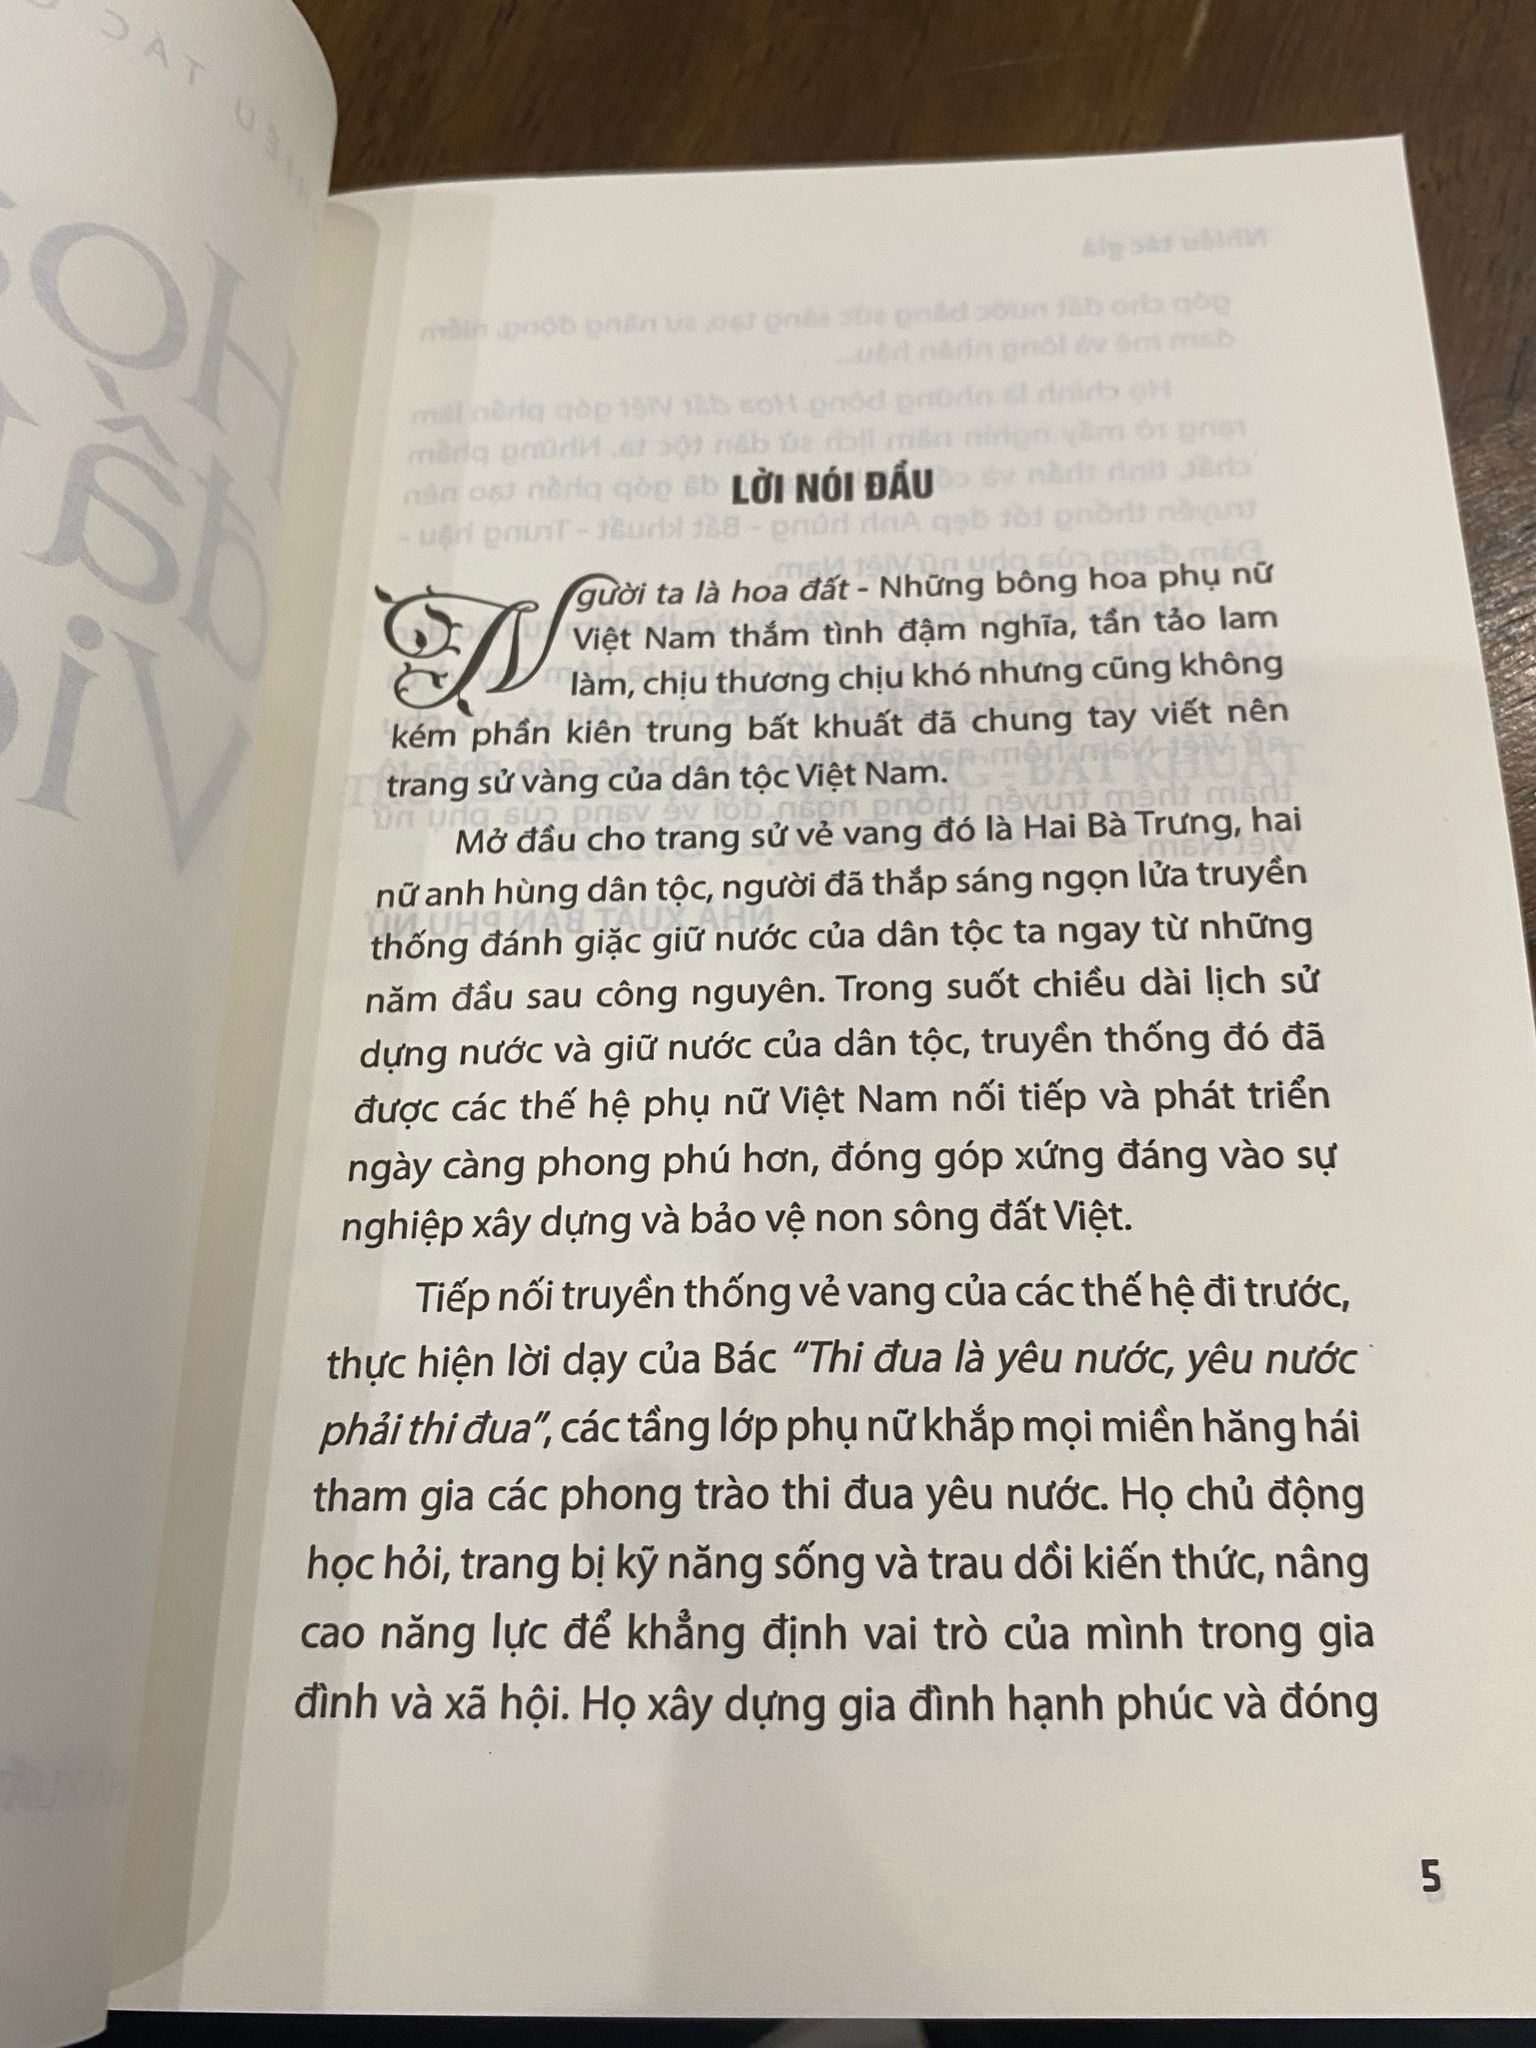 LỜI NÓI ĐẦU
Người ta là hoa đất - Những bông hoa phụ nữ
Việt Nam thắm tình đậm nghĩa, tần tảo lam
làm, chịu thương chịu khó nhưng cũng không
kém phần kiên trung bất khuất đã chung tay viết nên
trang sử vàng của dân tộc Việt Nam.
Mở đầu cho trang sử vẻ vang đó là Hai Bà Trưng, hai
nữ anh hùng dân tộc, người đã thắp sáng ngọn lửa truyền
thống đánh giặc giữ nước của dân tộc ta ngay từ những
năm đầu sau công nguyên. Trong suốt chiều dài lịch sử
dựng nước và giữ nước của dân tộc, truyền thống đó đã
được các thế hệ phụ nữ Việt Nam nối tiếp và phát triển
ngày càng phong phú hơn, đóng góp xứng đáng vào sự
nghiệp xây dựng và bảo vệ non sông đất Việt.
Tiếp nối truyền thống vẻ vang của các thế hệ đi trước,
thực hiện lời dạy của Bác “Thi đua là yêu nước, yêu nước
phải thi đua”, các tầng lớp phụ nữ khắp mọi miền hăng hái
tham gia các phong trào thi đua yêu nước. Họ chủ động
học hỏi, trang bị kỹ năng sống và trau dồi kiến thức, nâng
cao năng lực để khẳng định vai trò của mình trong gia
đình và xã hội. Họ xây dựng gia đình hạnh phúc và đóng
5